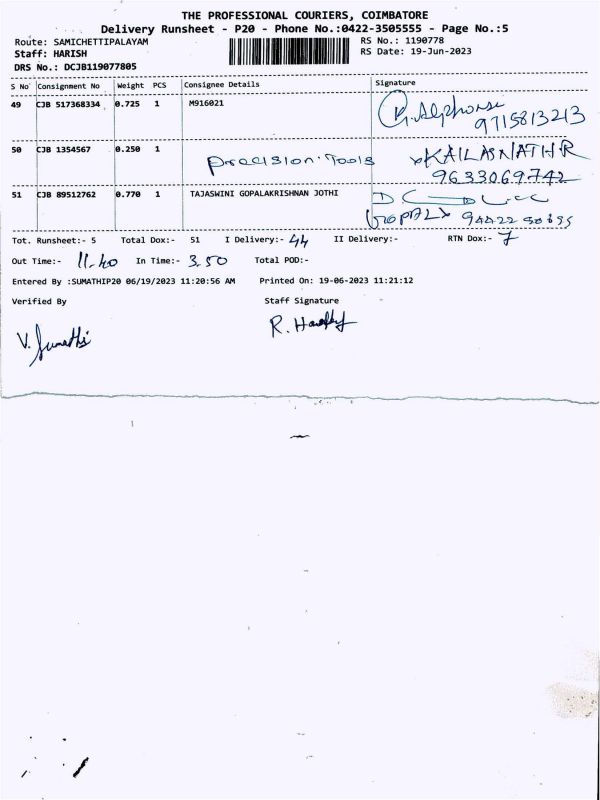 THE PROFESSIONAL COURIERS, COIMBATORE
Delivery Runsheet - P20 - Phone No.:0422-3505555 - Page No.:5
Route: SAMICHETTIPALAYAM
RS No.: 1190778
Staff: HARISH
RS Date: 19-Jun-2023
DRS No.: DCJB119077805
S No Consignment No Weight PCS Consignee Details Signature
49 CJB 517368334 0.725 1 M916021
G. Alphonse
9715813213
50 CJB 1354567 0.250 1
Precision Tools KAILASNATH R
9633069742
51 CJB 89512762 0.770 1 TAJASWINI GOPALAKRISHNAN JOTHI
Tot. Runsheet:- 5 Total Dox:- 51 I Delivery:- 44 II Delivery:- RTN Dox:- 7
Out Time:- 11.40 In Time:- 3.50 Total POD:-
Entered By :SUMATHIP20 06/19/2023 11:20:56 AM Printed On: 19-06-2023 11:21:12
Verified By Staff Signature
V. Sumathi